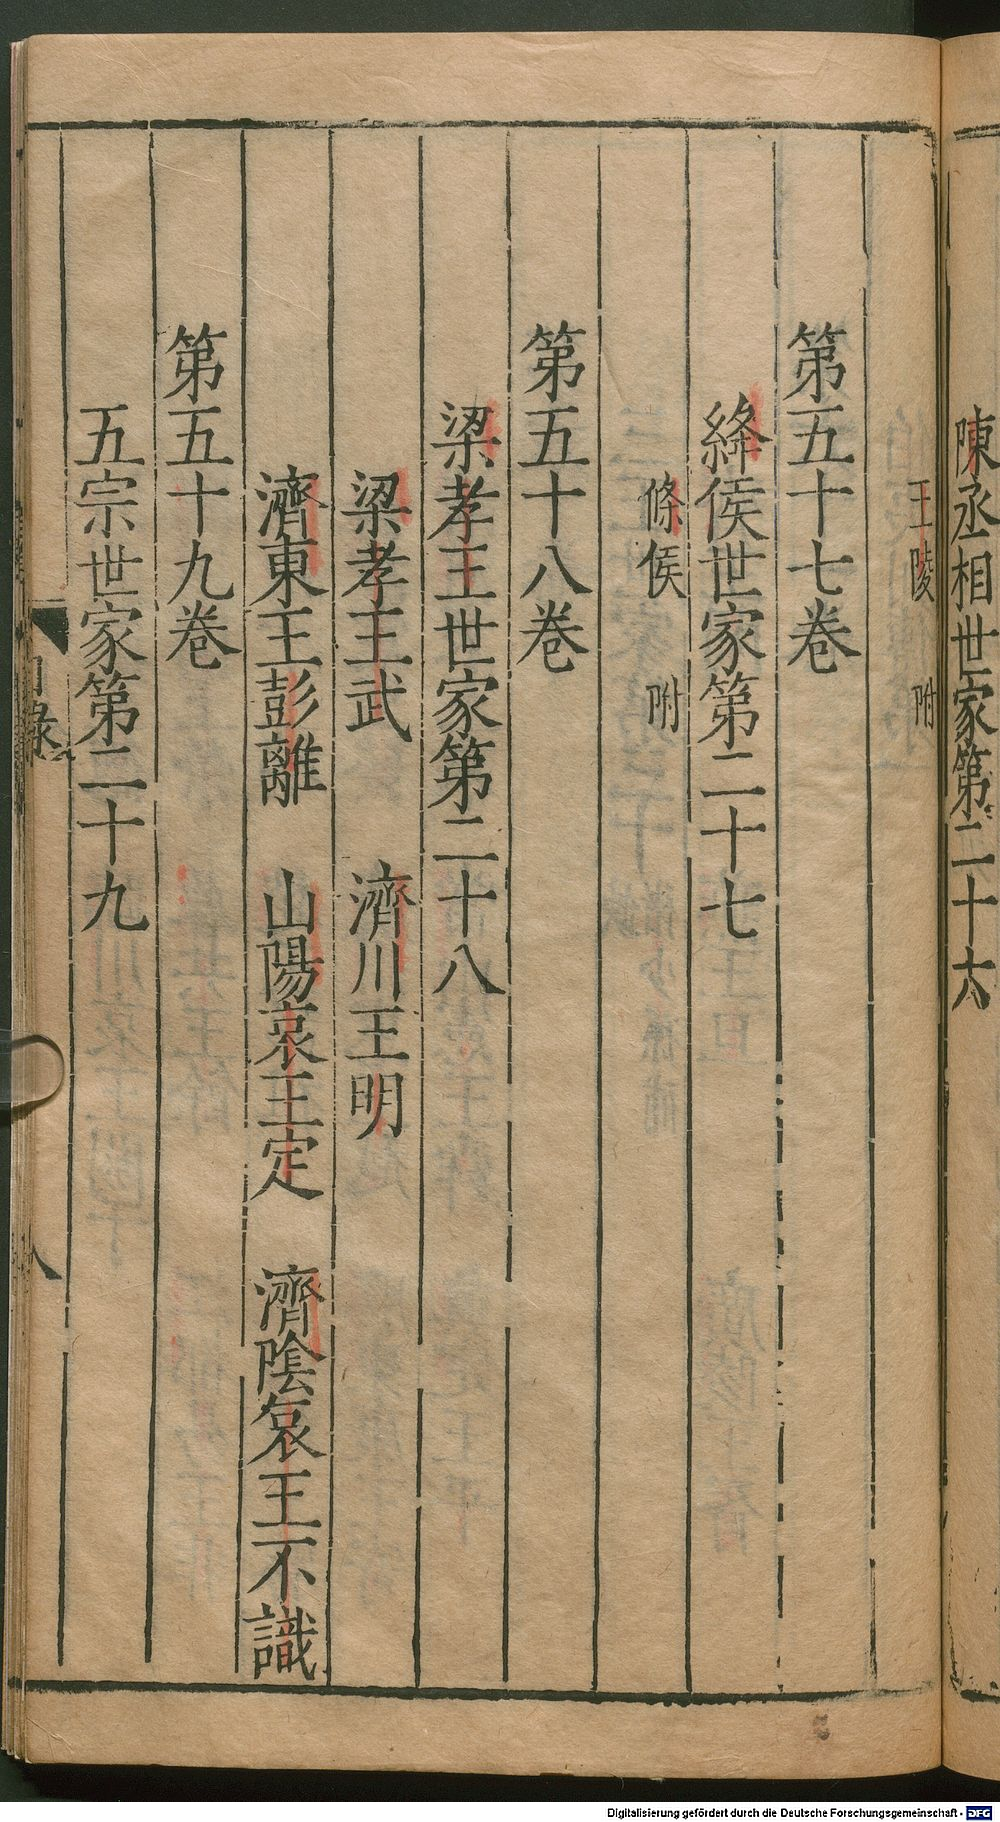 陳丞相世家第二十六
王陵 附
第五十七卷
絳侯世家第二十七
條侯 附
第五十八卷
梁孝王世家第二十八
梁孝王武 濟川王明
濟東王彭離 山陽哀王定 濟陰哀王不識
第五十九卷
五宗世家第二十九
目錄
八
Digitalisierung gefördert durch die Deutsche Forschungsgemeinschaft - DFG